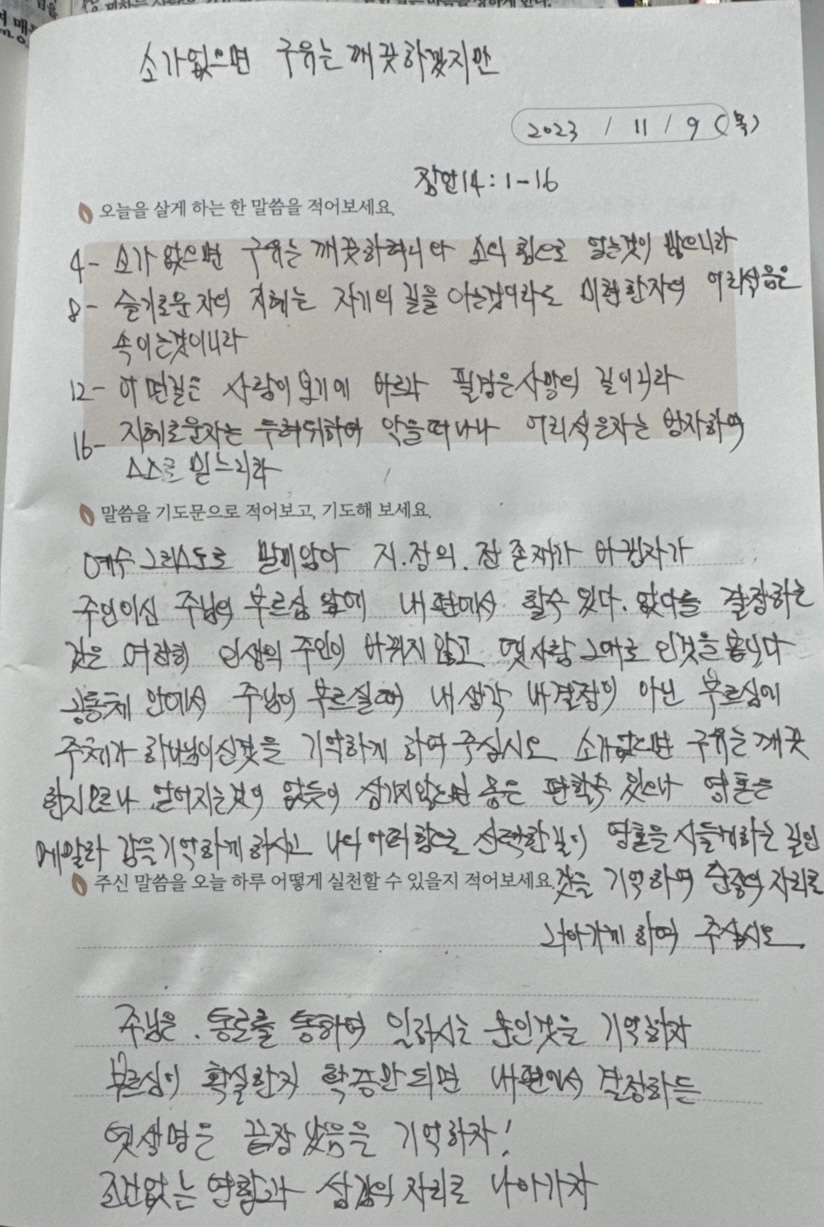 소가없으면 구유는 깨끗하겠지만
2023 / 11 / 9 (목)
잠언14:1-16
오늘을 살게 하는 한 말씀을 적어보세요.
4- 소가 없으면 구유는 깨끗하려니와 소의 힘으로 얻는것이 많으니라
8- 슬기로운 자의 지혜는 자기의 길을 아는것이라도 미련한자의 어리석음은
속이는것이니라
12- 어떤길은 사람이 보기에 바르나 필경은사망의 길이니라
16- 지혜로운자는 두려워하여 악을떠나나 어리석은자는 방자하여
스스로 믿느니라
말씀을 기도문으로 적어보고, 기도해 보세요.
예수 그리스도로 말미암아 지.정의. 전 존재가 바뀐자가
주인이신 주님의 부르심 앞에 내 편에서 할수 있다. 없다를 결정하는
것은 여전히 인생의 주인이 바뀌지 않고 옛 사람 그대로 인것을 봅니다
공동체 안에서 주님이 부르실때 내생각 내결정이 아닌 부르심에
주체가 하나님이신것을 기억하게 하여 주십시오 소가없으면 구유는 깨끗
할지모르나 얻어지는것이 없듯이 섬기지않으면 몸은 편할수 있으나 영혼은
메말라 감을기억하게 하시고 나의 어리함으로 선택한길이 영혼을 시들게하는 길인
주신 말씀을 오늘 하루 어떻게 실천할 수 있을지 적어보세요. 것을 기억하여 순종의 자리로
나아가게 하여 주십시오.
주님은. 통로를 통하여 일하시는 분인것을 기억하자
부르심이 확실한지 확증만 되면 내편에서 결정하는
옛생명은 끝장 났음을 기억하자!
조건없는 연합과 섬김의 자리로 나아가자